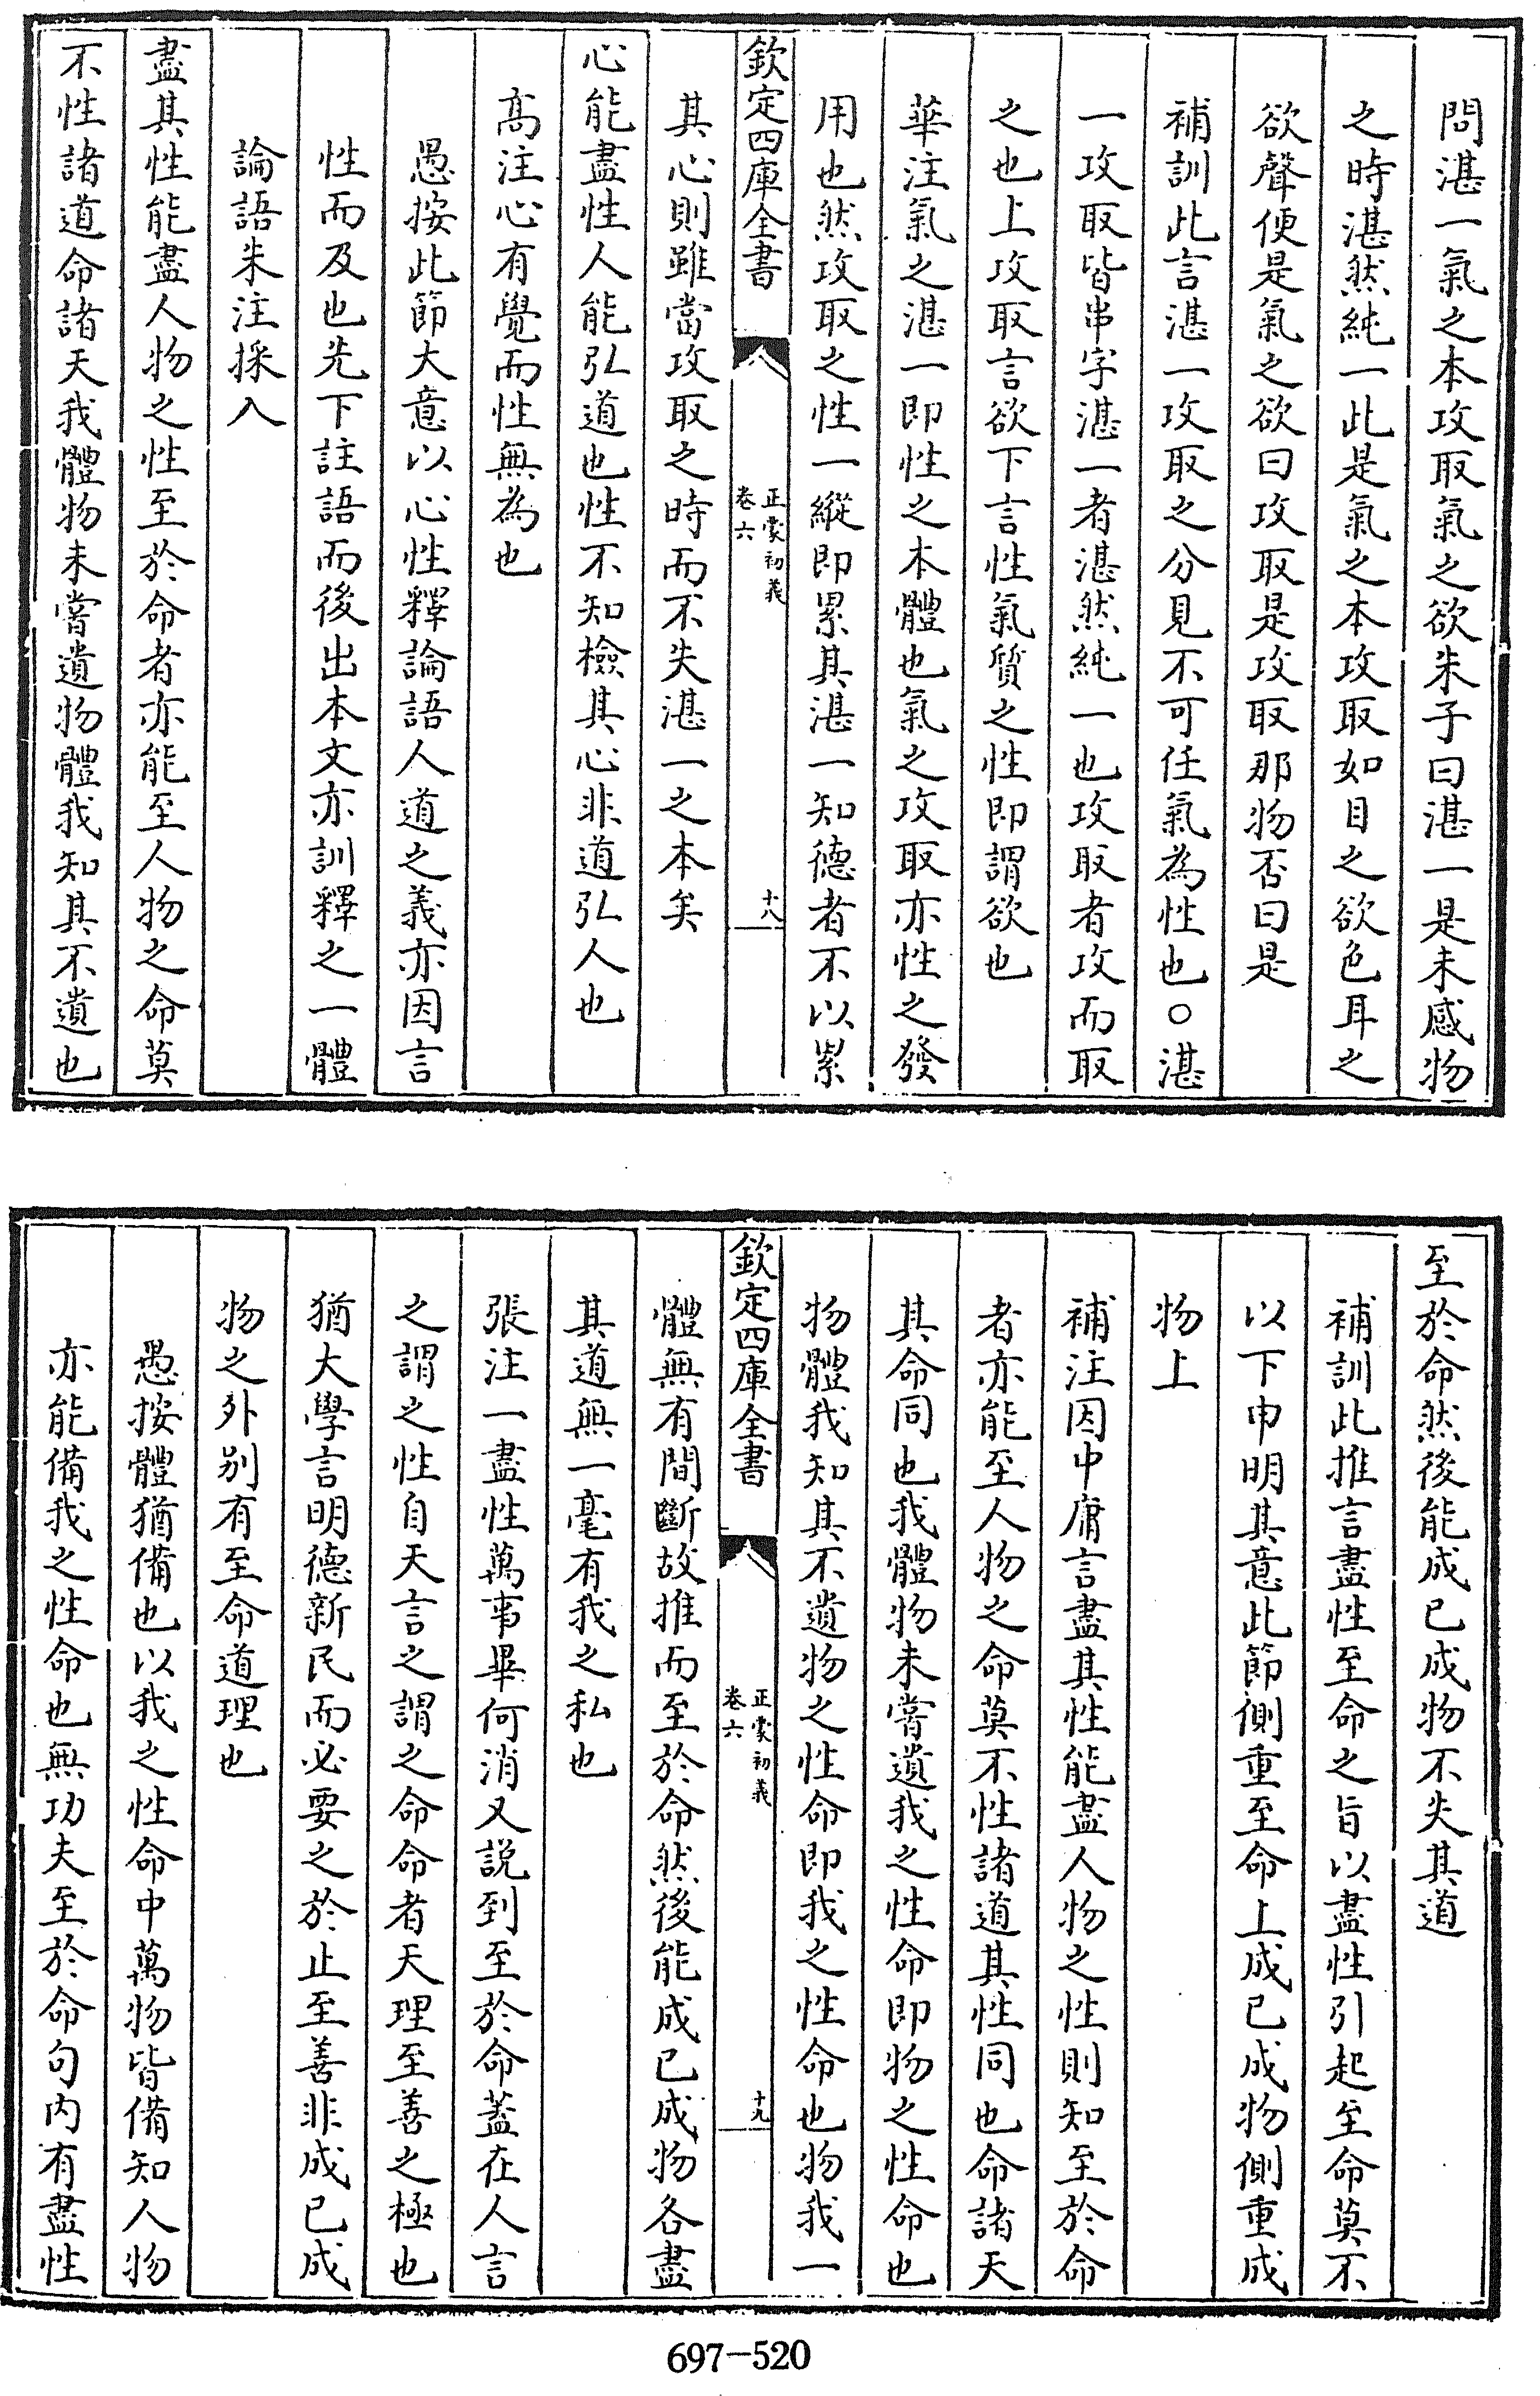 問湛一氣之本攻取氣之欲朱子曰湛一是未感物
之時湛然純一此是氣之本攻取如目之欲色耳之
欲聲便是氣之欲曰攻取是攻取那物否曰是
補訓此言湛一攻取之分見不可任氣為性也○湛
一攻取皆串字湛一者湛然純一也攻取者攻而取
之也上攻取言欲下言性氣質之性即謂欲也
華注氣之湛一即性之本體也氣之攻取亦性之發
用也然攻取之性一縱即累其湛一知德者不以累
欽定四庫全書
正蒙初義
卷六
十八
其心則雖當攻取之時而不失湛一之本矣
心能盡性人能弘道也性不知檢其心非道弘人也
高注心有覺而性無為也
愚按此節大意以心性釋論語人道之義亦因言
性而及也先下註語而後出本文亦訓釋之一體
論語朱注採入
盡其性能盡人物之性至於命者亦能至人物之命莫
不性諸道命諸天我體物未嘗遺物體我知其不遺也
至於命然後能成已成物不失其道
補訓此推言盡性至命之旨以盡性引起至命莫不
以下申明其意此節側重至命上成已成物側重成
物上
補注因中庸言盡其性能盡人物之性則知至於命
者亦能至人物之命莫不性諸道其性同也命諸天
其命同也我體物未嘗遺我之性命即物之性命也
物體我知其不遺物之性命即我之性命也物我一
欽定四庫全書
正蒙初義
卷六
十九
體無有間斷故推而至於命然後能成已成物各盡
其道無一毫有我之私也
張注一盡性萬事畢何消又説到至於命蓋在人言
之謂之性自天言之謂之命命者天理至善之極也
猶大學言明德新民而必要之於止至善非成已成
物之外别有至命道理也
愚按體猶備也以我之性命中萬物皆備知人物
亦能備我之性命也無功夫至於命句内有盡性
697-520